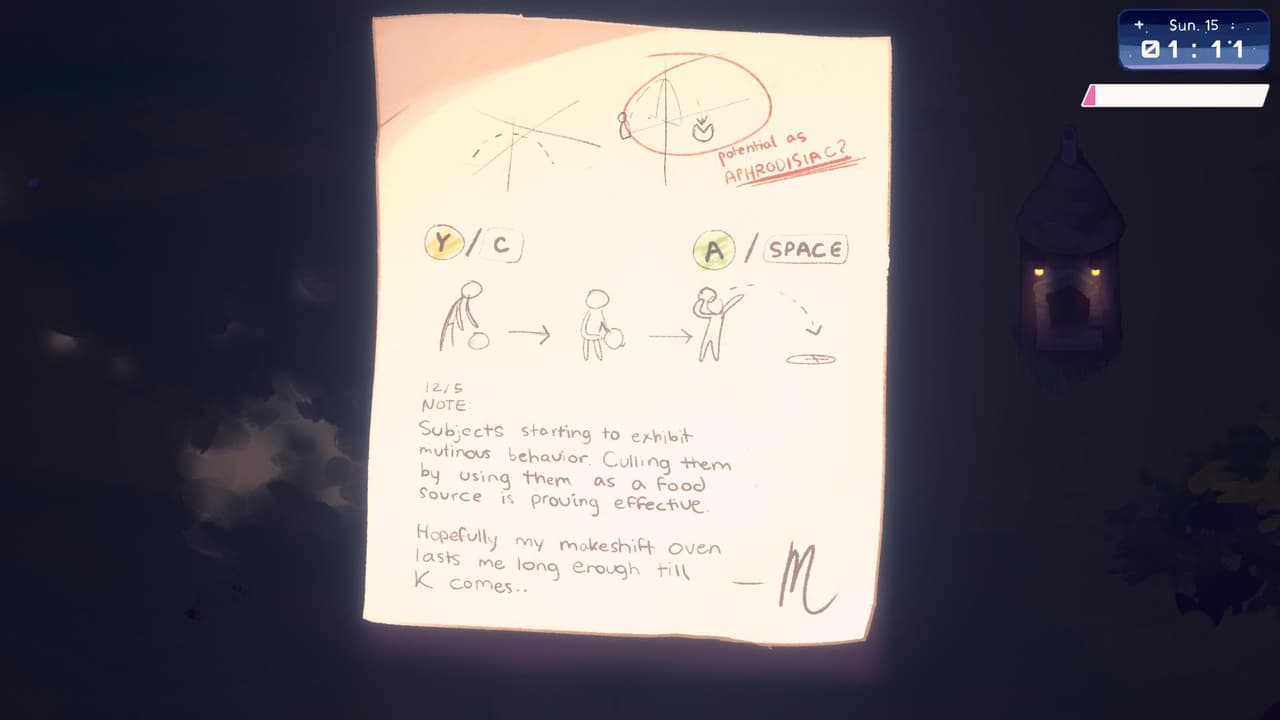 Sun. 15
01:11
potential as
APHRODISIAC?
Y / C
A / SPACE
12/5
NOTE
Subjects starting to exhibit
mutinous behavior. Culling them
by using them as a food
source is proving effective.
Hopefully my makeshift oven
lasts me long enough till
K comes..
— M